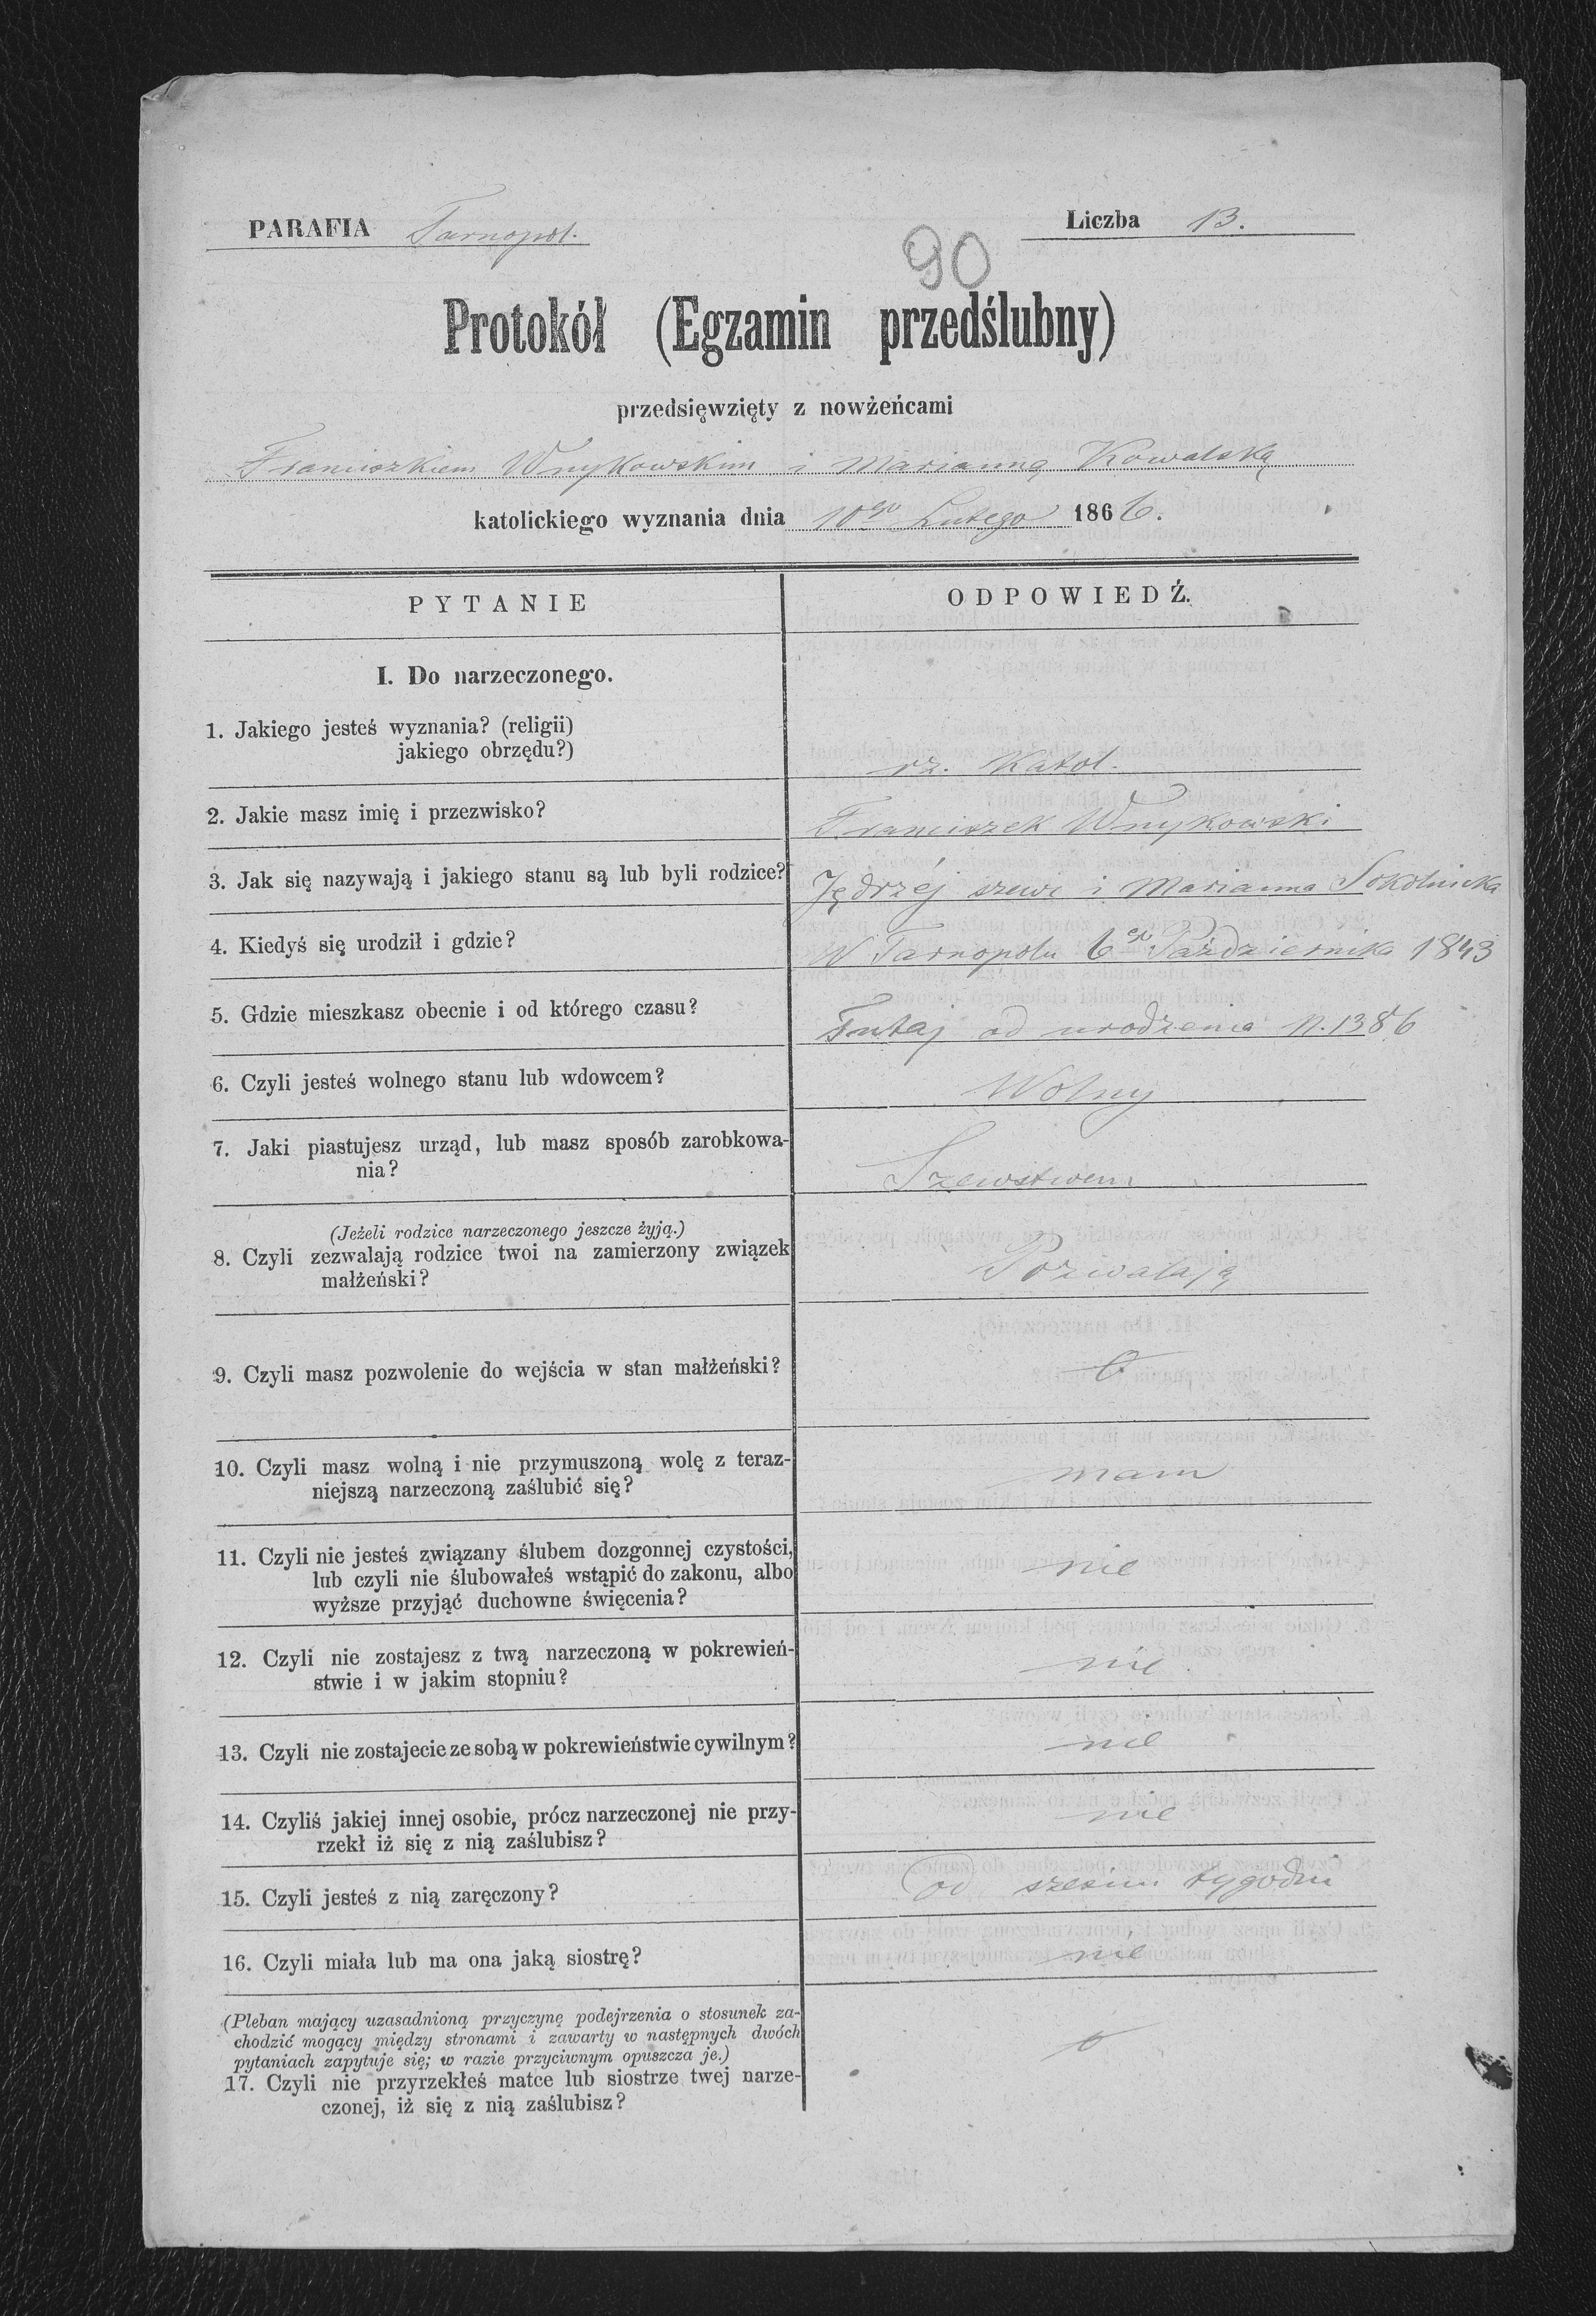 PARAFIA Tarnopol. Liczba 13.
90
Protokół (Egzamin przedślubny)
przedsięwzięty z nowżeńcami
Franciszkiem Wnykowskim i Marianną Kowalską
katolickiego wyznania dnia 10go Lutego 1866.
PYTANIE
ODPOWIEDŹ.
I. Do narzeczonego.
1. Jakiego jesteś wyznania? (religii)
jakiego obrzędu?)
rz. Katol.
2. Jakie masz imię i przezwisko?
Franciszek Wnykowski
3. Jak się nazywają i jakiego stanu są lub byli rodzice?
Jędrzéj szewc i Marianna Sokolnicka
4. Kiedyś się urodził i gdzie?
W Tarnopolu 6go Października 1843
5. Gdzie mieszkasz obecnie i od którego czasu?
Tutaj od urodzenia N. 1386
6. Czyli jesteś wolnego stanu lub wdowcem?
Wolny
7. Jaki piastujesz urząd, lub masz sposób zarobkowa-
nia?
Szewstwem
(Jeżeli rodzice narzeczonego jeszcze żyją.)
8. Czyli zezwalają rodzice twoi na zamierzony związek
małżeński?
Pozwalają
9. Czyli masz pozwolenie do wejścia w stan małżeński?
0
10. Czyli masz wolną i nie przymuszoną wolę z teraz-
niejszą narzeczoną zaślubić się?
mam
11. Czyli nie jesteś związany ślubem dozgonnej czystości,
lub czyli nie ślubowałeś wstąpić do zakonu, albo
wyższe przyjąć duchowne święcenia?
nie
12. Czyli nie zostajesz z twą narzeczoną w pokrewień-
stwie i w jakim stopniu?
nie.
13. Czyli nie zostajecie ze sobą w pokrewieństwie cywilnym?
nie
14. Czyliś jakiej innej osobie, prócz narzeczonej nie przy-
rzekł iż się z nią zaślubisz?
nie
15. Czyli jesteś z nią zaręczony?
od sześciu tygodni
16. Czyli miała lub ma ona jaką siostrę?
nie
(Pleban mający uzasadnioną przyczynę podejrzenia o stosunek za-
chodzić mogący między stronami i zawarty w następnych dwóch
pytaniach zapytuje się; w razie przyciwnym opuszcza je.)
17. Czyli nie przyrzekłeś matce lub siostrze twej narze-
czonej, iż się z nią zaślubisz?
0